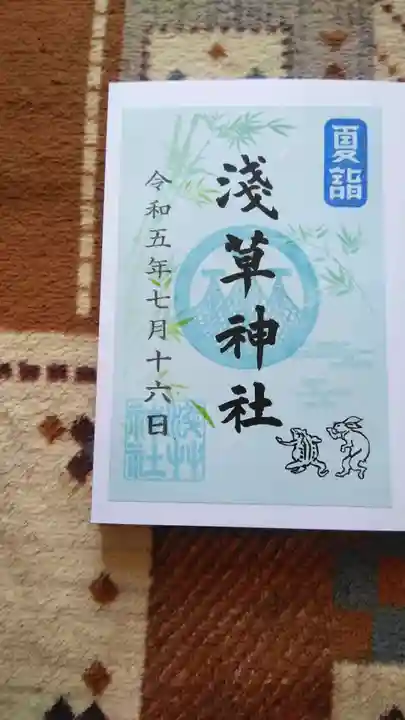 夏詣
淺草神社
令和五年七月十六日
淺草
神社